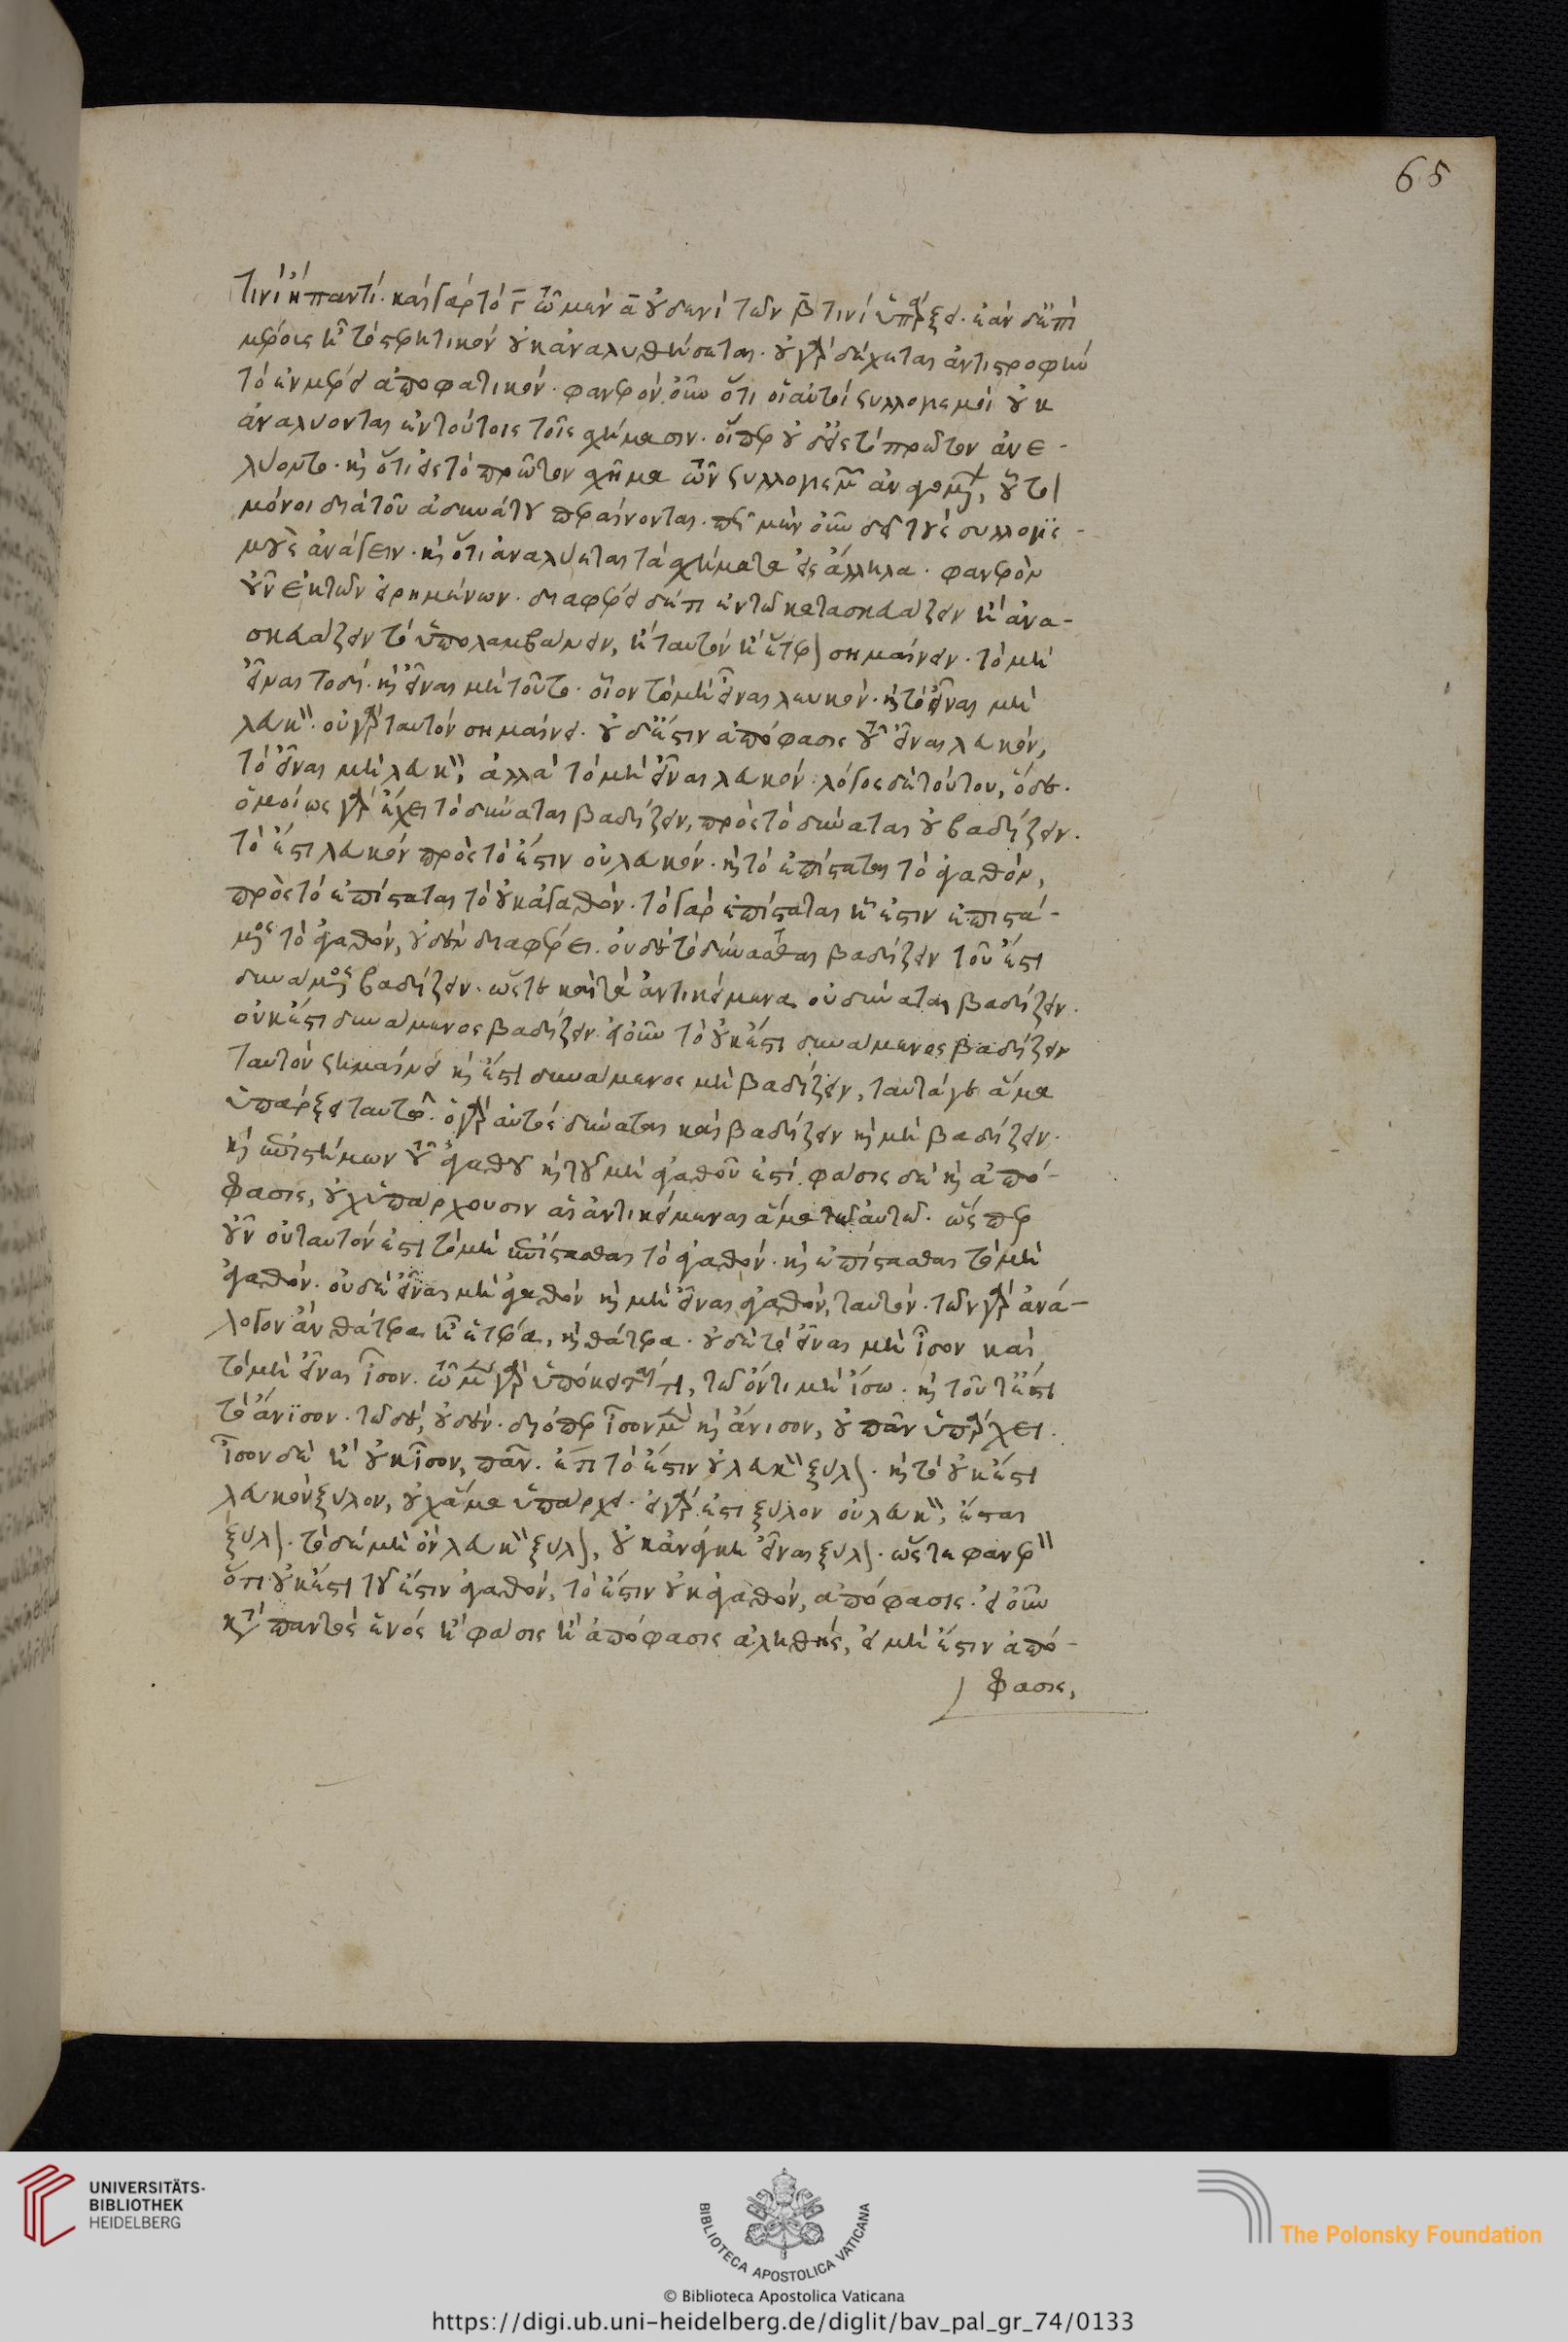 τινὶ ἢ παντί. καὶ γὰρ τὸ γ̄ τῷ μὲν ᾱ οὐδενὶ τῶν β̄ τινὶ ὑπάρξει. ἐὰν δ' ἐπὶ
μέρους ἦ τὸ στερητικὸν οὐκ ἀναλυθήσεται. οὐ γὰρ δέχεται ἀντιστροφὴν
τὸ ἐν μέρει ἀποφατικόν. φανερὸν οὖν ὅτι οἱ αὐτοὶ συλλογισμοὶ οὐκ
ἀναλύονται ἐν τούτοις τοῖς σχήμασιν. οἵπερ οὐδ' εἰς τὸ πρῶτον ἀνε-
λύοντο. καὶ ὅτι εἰς τὸ πρῶτον σχῆμα τῶν συλλογισμῶν ἀναγομένων, οὗτοι
μόνοι διὰ τοῦ ἀδυνάτου περαίνονται. πῶς μὲν οὖν δεῖ τοὺς συλλογισ-
μοὺς ἀνάγειν. καὶ ὅτι ἀναλύεται τὰ σχήματα εἰς ἄλληλα. φανερὸν
οὖν ἐκ τῶν εἰρημένων. διαφέρει δέ τι ἐν τῷ κατασκευάζειν ἢ ἀνα-
σκευάζειν τὸ ὑπολαμβάνειν, ἢ ταυτὸν ἢ ἕτερον σημαίνειν. τὸ μὴ
εἶναι τοδί. καὶ εἶναι μὴ τοῦτο. οἷον τὸ μὴ εἶναι λευκόν. καὶ τὸ εἶναι μὴ
λευκόν. οὐ γὰρ ταυτὸν σημαίνει. οὐδ' ἔστιν ἀπόφασις τοῦ εἶναι λευκόν,
τὸ εἶναι μὴ λευκόν, ἀλλὰ τὸ μὴ εἶναι λευκόν. λόγος δὲ τούτου, ὅδε.
ὁμοίως γὰρ ἔχει τὸ δύναται βαδίζειν, πρὸς τὸ δύναται οὐ βαδίζειν.
τὸ ἔστι λευκὸν πρὸς τὸ ἔστιν οὐ λευκόν. καὶ τὸ ἐπίσταται τὸ ἀγαθόν,
πρὸς τὸ ἐπίσταται τὸ οὐκ ἀγαθόν. τὸ γὰρ ἐπίσταται ἢ ἔστιν ἐπιστά-
μενος τὸ ἀγαθόν, οὐδὲν διαφέρει. οὐδὲ τὸ δύνασθαι βαδίζειν τοῦ ἔστι
δυνάμενος βαδίζειν. ὥστε καὶ τὰ ἀντικείμενα οὐ δύναται βαδίζειν.
οὐκ ἔστι δυνάμενος βαδίζειν. εἰ οὖν τὸ οὐκ ἔστι δυνάμενος βαδίζειν
ταυτὸν σημαίνει καὶ ἔστι δυνάμενος μὴ βαδίζειν, ταῦτά γε ἅμα
ὑπάρξει ταυτῷ. ὁ γὰρ αὐτὸς δύναται καὶ βαδίζειν καὶ μὴ βαδίζειν.
καὶ ἐπιστήμων τοῦ ἀγαθοῦ καὶ τοῦ μὴ ἀγαθοῦ ἐστί. φάσις δὲ καὶ ἀπό-
φασις, οὐχ ὑπάρχουσιν αἱ ἀντικείμεναι ἅμα τῷ αὐτῷ. ὥσπερ
οὖν οὐ ταυτόν ἐστι τὸ μὴ ἐπίστασθαι τὸ ἀγαθόν. καὶ ἐπίστασθαι τὸ μὴ
ἀγαθόν. οὐδὲ εἶναι μὴ ἀγαθὸν καὶ μὴ εἶναι ἀγαθόν, ταυτόν. τῶν γὰρ ἀνά-
λογον ἂν θάτερα ἦ ἕτερα, καὶ θάτερα. οὐδὲ τὸ εἶναι μὴ ἴσον καὶ
τὸ μὴ εἶναι ἴσον. τῷ μὲν γὰρ ὑπόκειταί τι, τῷ ὄντι μὴ ἴσω. καὶ τοῦτ' ἔστι
τὸ ἄνισον. τῷ δέ, οὐδέν. διόπερ ἴσον μὲν καὶ ἄνισον, οὐ πᾶν ὑπάρχει.
ἴσον δὲ ἢ οὐκ ἴσον, πᾶν. ἔτι τὸ ἔστιν οὐ λευκὸν ξύλον. καὶ τὸ οὐκ ἔστι
λευκὸν ξύλον, οὐχ ἅμα ὑπάρχει. εἰ γάρ ἐστι ξύλον οὐ λευκόν, ἔσται
ξύλον. τὸ δὲ μὴ ὂν λευκὸν ξύλον, οὐκ ἀνάγκη εἶναι ξύλον. ὥστε φανερὸν
ὅτι οὐκ ἔστι τοῦ ἔστιν ἀγαθόν, τὸ ἔστιν οὐκ ἀγαθόν, ἀπόφασις. εἰ οὖν
κατὰ παντὸς ἑνὸς ἢ φάσις ἢ ἀπόφασις ἀληθής, εἰ μὴ ἔστιν ἀπό-
φασις,
65
UNIVERSITÄTS-
BIBLIOTHEK
HEIDELBERG
BIBLIOTECA APOSTOLICA VATICANA
The Polonsky Foundation
© Biblioteca Apostolica Vaticana
https://digi.ub.uni-heidelberg.de/diglit/bav_pal_gr_74/0133